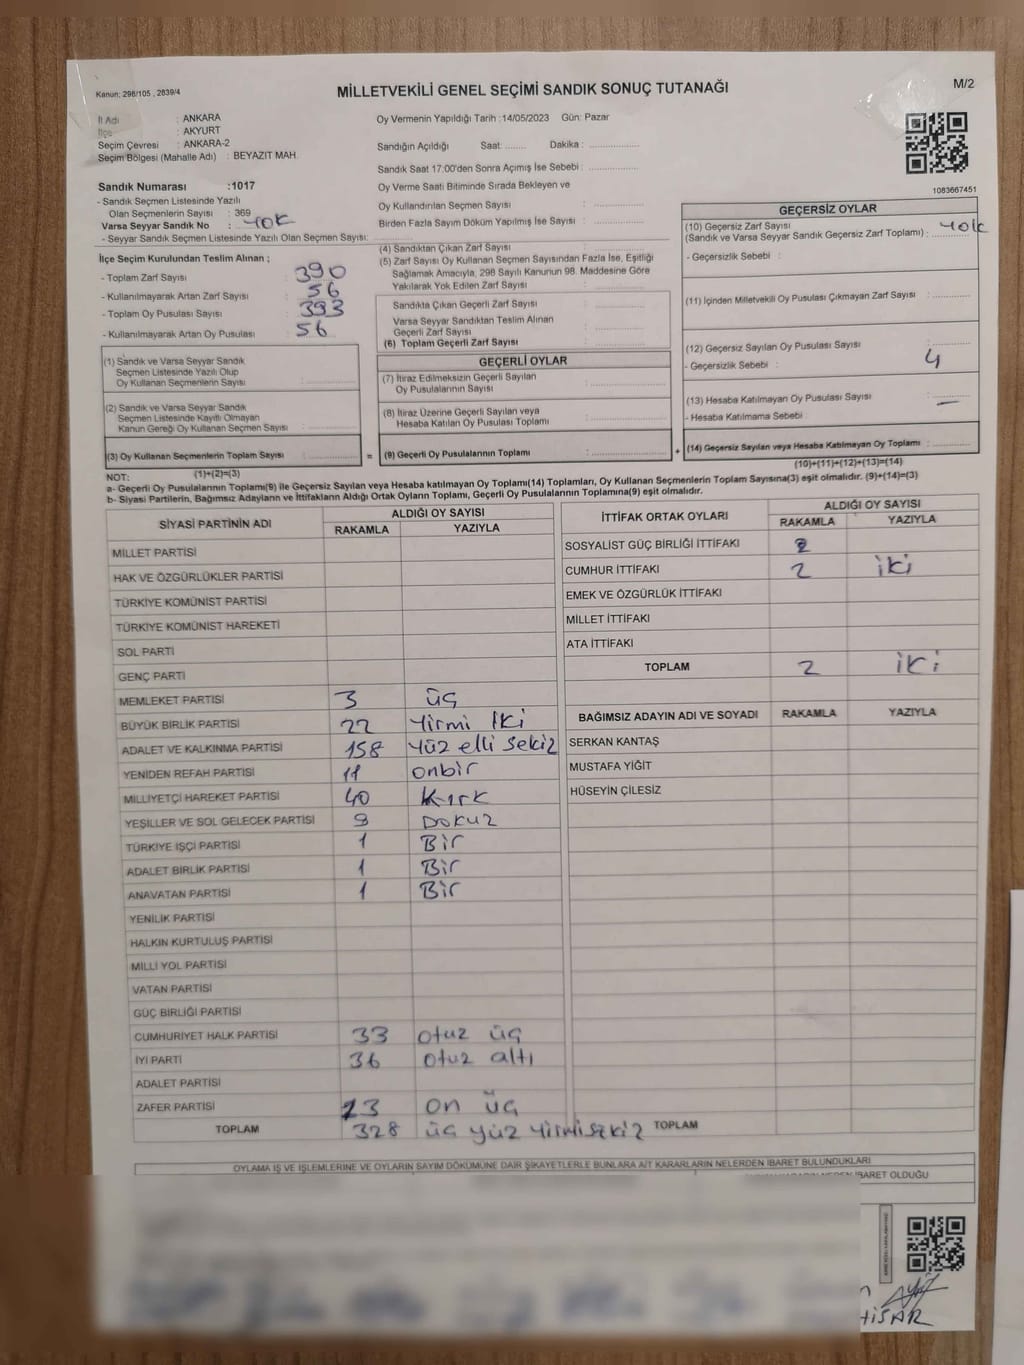 Kanun: 298/105 , 2839/4
MİLLETVEKİLİ GENEL SEÇİMİ SANDIK SONUÇ TUTANAĞI
M/2
İl Adı : ANKARA
İlçe : AKYURT
Seçim Çevresi : ANKARA-2
Seçim Bölgesi (Mahalle Adı) : BEYAZIT MAH.
Oy Vermenin Yapıldığı Tarih :14/05/2023 Gün: Pazar
Sandığın Açıldığı Saat: ........ Dakika : ....................
Sandık Saat 17:00'den Sonra Açımış İse Sebebi : ....................
Oy Verme Saati Bitiminde Sırada Bekleyen ve
Oy Kullandırılan Seçmen Sayısı : ....................
Birden Fazla Sayım Döküm Yapılmış İse Sayısı : ....................
1083667451
Sandık Numarası :1017
- Sandık Seçmen Listesinde Yazılı
Olan Seçmenlerin Sayısı : 369
Varsa Seyyar Sandık No : YOK
- Seyyar Sandık Seçmen Listesinde Yazılı Olan Seçmen Sayısı:
İlçe Seçim Kurulundan Teslim Alınan ;
- Toplam Zarf Sayısı : 390
- Kullanılmayarak Artan Zarf Sayısı : 56
- Toplam Oy Pusulası Sayısı : 393
- Kullanılmayarak Artan Oy Pusulası : 56
(1) Sandık ve Varsa Seyyar Sandık
Seçmen Listesinde Yazılı Olup
Oy Kullanan Seçmenlerin Sayısı : ....................
(2) Sandık ve Varsa Seyyar Sandık
Seçmen Listesinde Kayıtlı Olmayan
Kanun Gereği Oy Kullanan Seçmen Sayısı : ....................
(3) Oy Kullanan Seçmenlerin Toplam Sayısı : .................... =
(1)+(2)=(3)
(4) Sandıktan Çıkan Zarf Sayısı : ....................
(5) Zarf Sayısı Oy Kullanan Seçmen Sayısından Fazla İse, Eşitliği
Sağlamak Amacıyla, 298 Sayılı Kanunun 98. Maddesine Göre
Yakılarak Yok Edilen Zarf Sayısı : ....................
Sandıkta Çıkan Geçerli Zarf Sayısı : ....................
Varsa Seyyar Sandıktan Teslim Alınan
Geçerli Zarf Sayısı : ....................
(6) Toplam Geçerli Zarf Sayısı : ....................
GEÇERLİ OYLAR
(7) İtiraz Edilmeksizin Geçerli Sayılan
Oy Pusulalarının Sayısı : ....................
(8) İtiraz Üzerine Geçerli Sayılan veya
Hesaba Katılan Oy Pusulası Toplamı : ....................
(9) Geçerli Oy Pusulalarının Toplamı : .................... +
GEÇERSİZ OYLAR
(10) Geçersiz Zarf Sayısı
(Sandık ve Varsa Seyyar Sandık Geçersiz Zarf Toplamı) : YOK
- Geçersizlik Sebebi :
(11) İçinden Milletvekili Oy Pusulası Çıkmayan Zarf Sayısı : ....................
(12) Geçersiz Sayılan Oy Pusulası Sayısı : ....................
- Geçersizlik Sebebi : 4
(13) Hesaba Katılmayan Oy Pusulası Sayısı : —
- Hesaba Katılmama Sebebi :
(14) Geçersiz Sayılan veya Hesaba Katılmayan Oy Toplamı : ....................
(10)+(11)+(12)+(13)=(14)
NOT:
a- Geçerli Oy Pusulalarının Toplamı(9) ile Geçersiz Sayılan veya Hesaba katılmayan Oy Toplamı(14) Toplamları, Oy Kullanan Seçmenlerin Toplam Sayısına(3) eşit olmalıdır. (9)+(14)=(3)
b- Siyasi Partilerin, Bağımsız Adayların ve İttifakların Aldığı Ortak Oyların Toplamı, Geçerli Oy Pusulalarının Toplamına(9) eşit olmalıdır.
SİYASİ PARTİNİN ADI ALDIĞI OY SAYISI
RAKAMLA YAZIYLA
MİLLET PARTİSİ
HAK VE ÖZGÜRLÜKLER PARTİSİ
TÜRKİYE KOMÜNİST PARTİSİ
TÜRKİYE KOMÜNİST HAREKETİ
SOL PARTİ
GENÇ PARTİ
MEMLEKET PARTİSİ 3 üç
BÜYÜK BİRLİK PARTİSİ 22 Yirmi İki
ADALET VE KALKINMA PARTİSİ 158 Yüz elli sekiz
YENİDEN REFAH PARTİSİ 11 onbir
MİLLİYETÇİ HAREKET PARTİSİ 40 Kırk
YEŞİLLER VE SOL GELECEK PARTİSİ 9 DOKUZ
TÜRKİYE İŞÇİ PARTİSİ 1 Bir
ADALET BİRLİK PARTİSİ 1 Bir
ANAVATAN PARTİSİ 1 Bir
YENİLİK PARTİSİ
HALKIN KURTULUŞ PARTİSİ
MİLLİ YOL PARTİSİ
VATAN PARTİSİ
GÜÇ BİRLİĞİ PARTİSİ
CUMHURİYET HALK PARTİSİ 33 otuz üç
İYİ PARTİ 36 otuz altı
ADALET PARTİSİ
ZAFER PARTİSİ 13 on üç
TOPLAM 328 üç yüz yirmisekiz
İTTİFAK ORTAK OYLARI ALDIĞI OY SAYISI
RAKAMLA YAZIYLA
SOSYALİST GÜÇ BİRLİĞİ İTTİFAKI
CUMHUR İTTİFAKI 2 iki
EMEK VE ÖZGÜRLÜK İTTİFAKI
MİLLET İTTİFAKI
ATA İTTİFAKI
TOPLAM 2 iki
BAĞIMSIZ ADAYIN ADI VE SOYADI RAKAMLA YAZIYLA
SERKAN KANTAŞ
MUSTAFA YİĞİT
HÜSEYİN ÇİLESİZ
TOPLAM
OYLAMA İŞ VE İŞLEMLERİNE VE OYLARIN SAYIM DÖKÜMÜNE DAİR ŞİKAYETLERLE BUNLARA AİT KARARLARIN NELERDEN İBARET BULUNDUKLARI
İBARET OLDUĞU
HİSAR